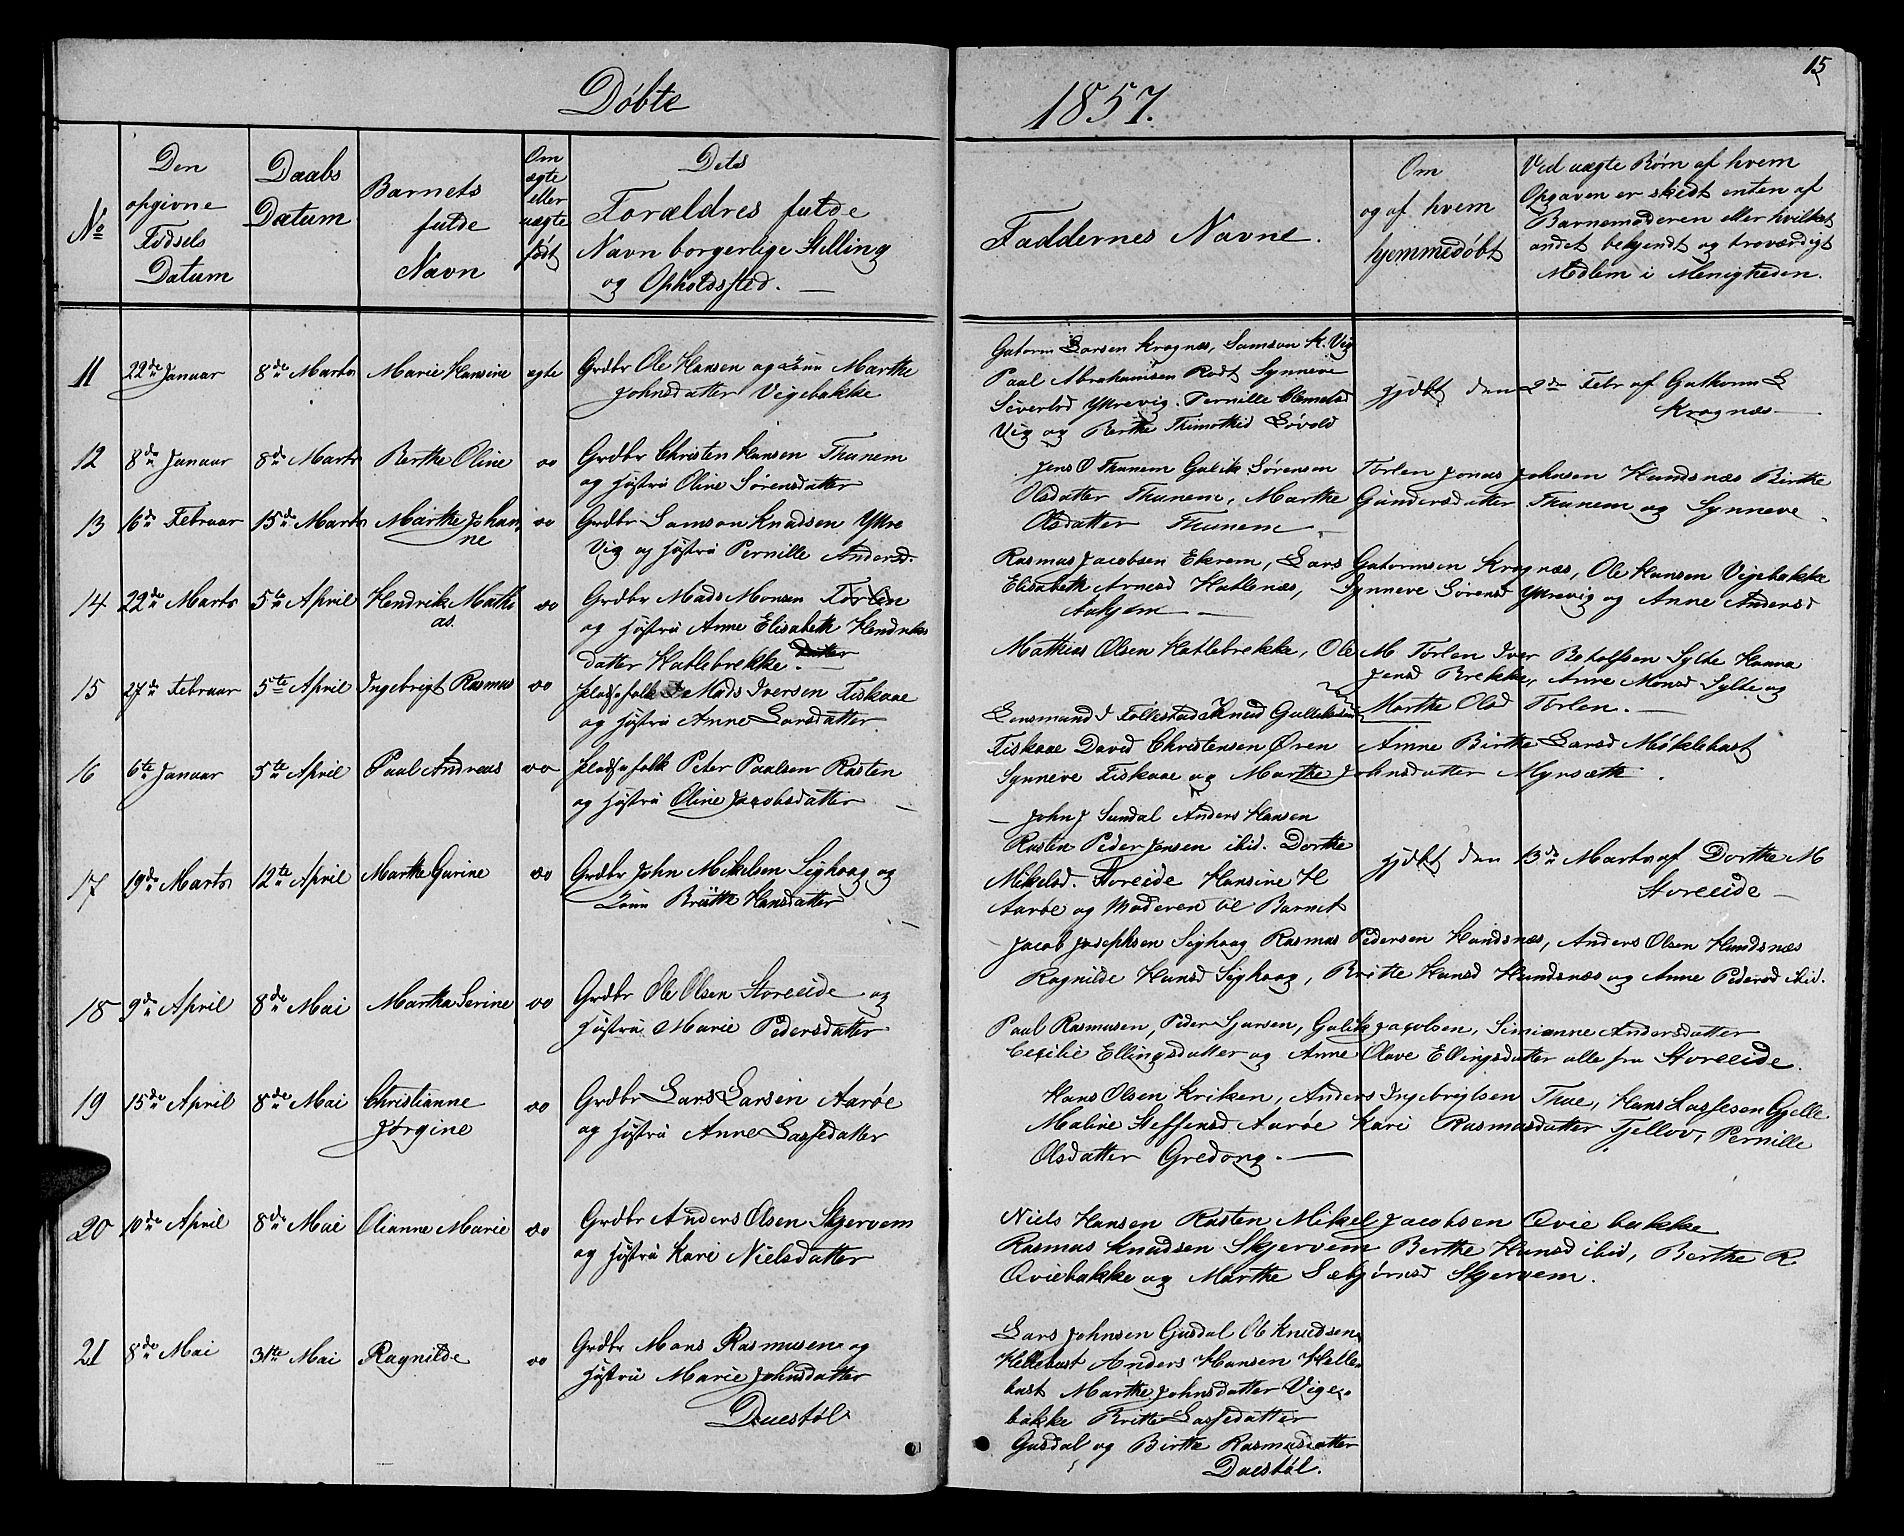 15
Døbte
1857.
No
Den
opgivne
Fødsels
Datum
Daabs
Datum
Barnets
fulde
Navn
Om
ægte
eller
uægte
født
Dets
Forældres fulde
Navn borgerlige Stilling
og Opholdssted. —
Faddernes Navne.
Om
og af hvem
hjemmedøbt
Ved uægte Børn af hvem
Opgaven er skedt enten af
Barnemoderen eller hvilket
andet bekjendt og troværdigt
Medlem i Menigheden.
11 22de Januar 8de Marts Marie Hansine ægte Grdbr Ole Hansen og Marthe
Johnsdatter Vigebakke
Gatorm Larsen Kragnæs, Samson K. Vig
Paul Abrahamsen Rødt Synneve
Sivertsd Yttrevig. Pernille Clemetsd
Vig og Berthe Thimothid Løvold
hjdbt den 2de Febr af Gathorm L
Kragnæs —
12 8de Januar 8de Marts Berthe Oline do Grdbr Christen Hansen Thunem
og Hustru Oline Sørensdatter
Jens O Thunem Gulik Sørensen Torlen Jonas Johnsen Hundsnæs Birthe
Olsdatter Thunem, Marthe Gundersdatter Thunem og Synneve
Olsdatter Thunem —
13 16de Februar 15de Marts Marthe Johan
ne do Grdbr Samson Knudsen Yttre
Vig og Hustru Pernille Andersd.
Rasmus Jacobsen Ekrem, Lars Gatormsen Kragnæs, Ole Hansen Vigebakke
Elisabeth Arnesd Hatlenæs, Synneve Sørensd Yttrevig og Anne Andersd
Aahjem —
14 22de Marts 5te April Hendrik Mathi
as. do Grdbr Mads Monsen Torlen
og Hustru Anne Elisabeth Hendriks
datter Hatlebrekke. datter —
Mathias Olsen Hatlebrekke, Ole M Torlen Iver Botolfsen Sylte Hanna
Jensd Brekke, Anne Monsd Sylte og
Marthe Olsd Torlen. —
15 27de Februar 5te April Ingebrigt Rasmus do pladsfolk Mads Iversen Fiskaae
og Hustru Anne Larsdatter
Lensmand J Follestad Knud Gullikssen
Fiskaae David Christensen Øren Anne Birthe Larsd Møklebust
Synneve Fiskaae og Marthe Johnsdatter Myrsæth.
16 6te Januar 5te April Paul Andreas do pladsfolk Peter Paulsen Rusten
og Hustru Oline Jacobsdatter —
— John J Sundal Anders Hansen
Rusten Peder Jensen ibid. Dorthe
Mikelsd. Storeide Hansine H
Aarøe og Moderen til Barnet
hjdbt den 13de Marts af Dorthe M
Storeeide —
17 19de Marts 12te April Marthe Gurine do Grdbr John Mikelsen Sighaag og
Britthe Hansdatter —
— Jacob Josephsen Sighaag Rasmus Pedersen Hundsnæs, Anders Olsen Hundsnæs
Ragnilde Hansd Sighaag, Britte Hansd Hundsnæs og Anne Pedersd ibid.
18 9de April 8de Mai Martha Serine do Grdbr Ole Olsen Storeeide og
Hustru Marie Pedersdatter
Paul Rasmusen, Peder Larsen, Gulik Jacobsen, Simianne Andersdatter
Cecilie Ellingsdatter og Anne Olave Ellingsdatter alle fra Storeeide.
19 15de April 8de Mai Christianne
Jørgine do Grdbr Lars Larsen Aarøe
og Hustru Anne Lassedatter
Hans Olsen Kriken, Anders Ingebrigtsen Thue, Hans Lassesen Gjelle
Maline Steffensd Aarøe Kari Rasmusdatter Fjellov, Pernille
Olsdatter Gredong. —
20 10de April 8de Mai Olianne Marie do Grdbr Anders Olsen Skjervem
og Hustru Kari Nielsdatter
Niels Hansen Rusten Mikel Jacobsen Qviebakke
Rasmus Knudsen Skjervem Berthe Hansd ibid, Berthe R
Qviebakke og Marthe Sæbjørnsd Skjervem.
21 8de Mai 31te Mai Ragnilde do Grdbr Mons Rasmusen og
Hustru Marie Johnsdatter
Duestøl
Lars Johnsen Gusdal Ole Knudsen
Hellebust Anders Hansen Helle-
bust Marthe Johnsdatter Vige-
bakke Britte Lassedatter
Gusdal og Birthe Rasmusdatter
Duestøl.